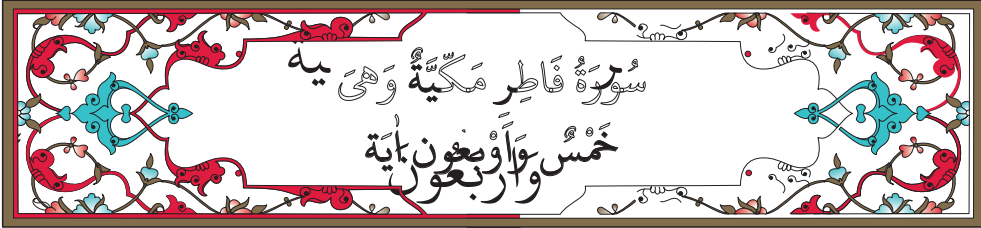 سُورَةُ فَاطِرِ مَكِّيَّةٌ وَهْىَ
خَمْسٌ وَأَرْبَعُونَ ءَايَة